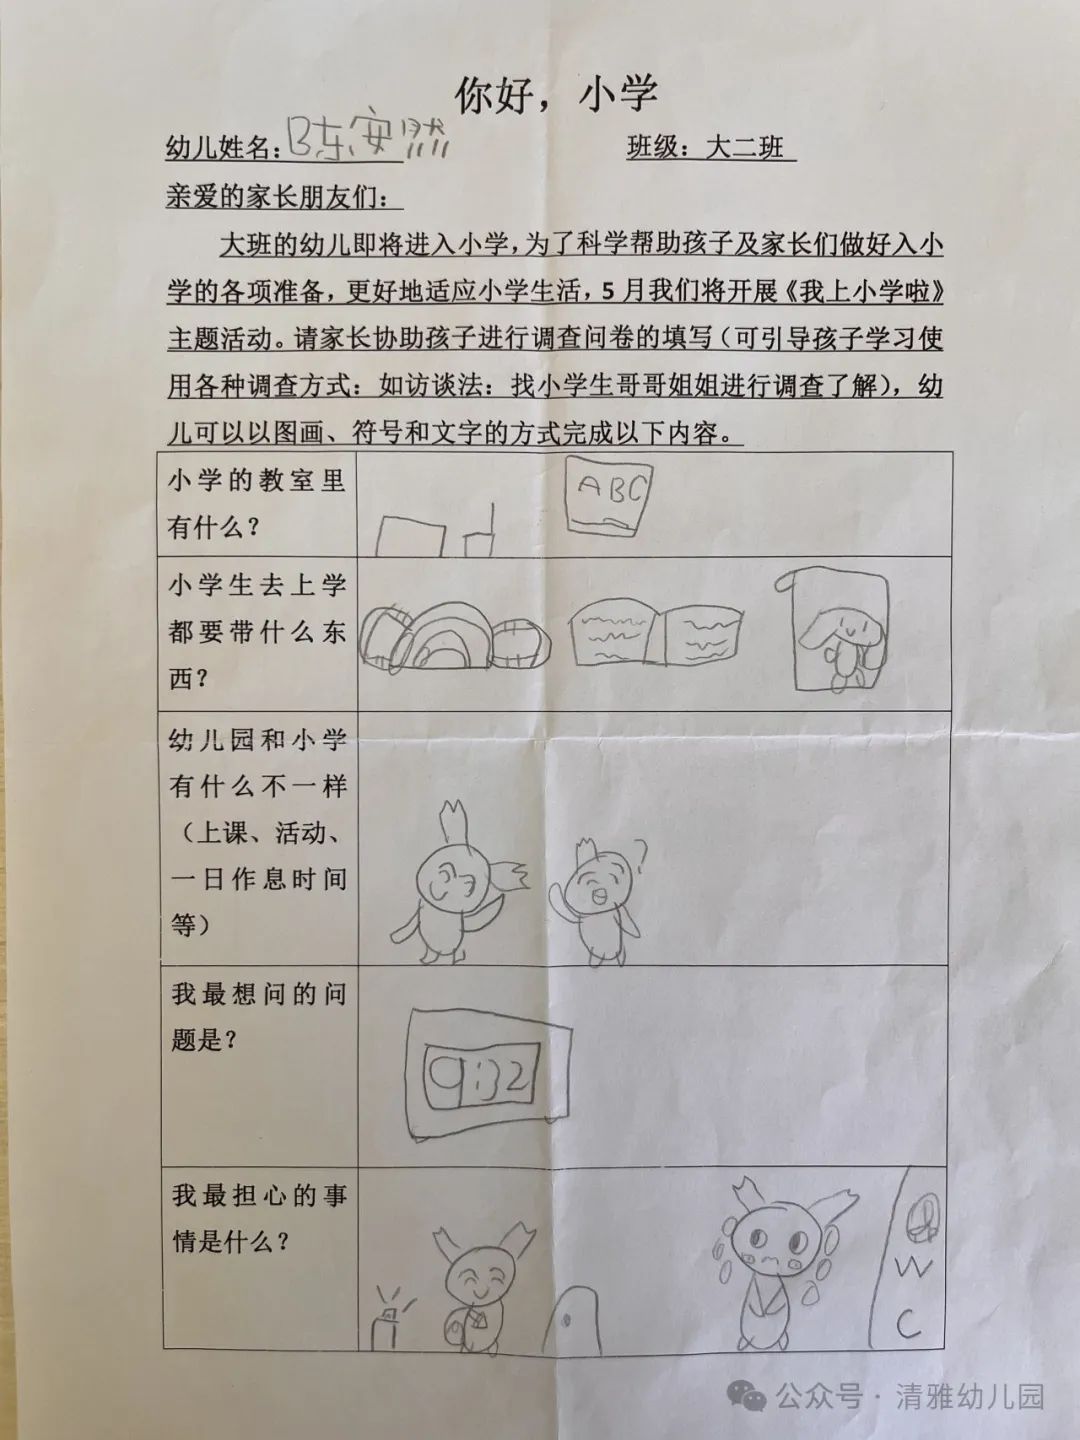 你好，小学
幼儿姓名：陈安然 班级：大二班
亲爱的家长朋友们：
大班的幼儿即将进入小学，为了科学帮助孩子及家长们做好入小
学的各项准备，更好地适应小学生活，5月我们将开展《我上小学啦》
主题活动。请家长协助孩子进行调查问卷的填写（可引导孩子学习使
用各种调查方式：如访谈法：找小学生哥哥姐姐进行调查了解），幼
儿可以以图画、符号和文字的方式完成以下内容。
小学的教室里
有什么？
ABC
小学生去上学
都要带什么东
西？
幼儿园和小学
有什么不一样
（上课、活动、
一日作息时间
等）
?
我最想问的问
题是？
9:32
我最担心的事
情是什么？
W
C
公众号·清雅幼儿园